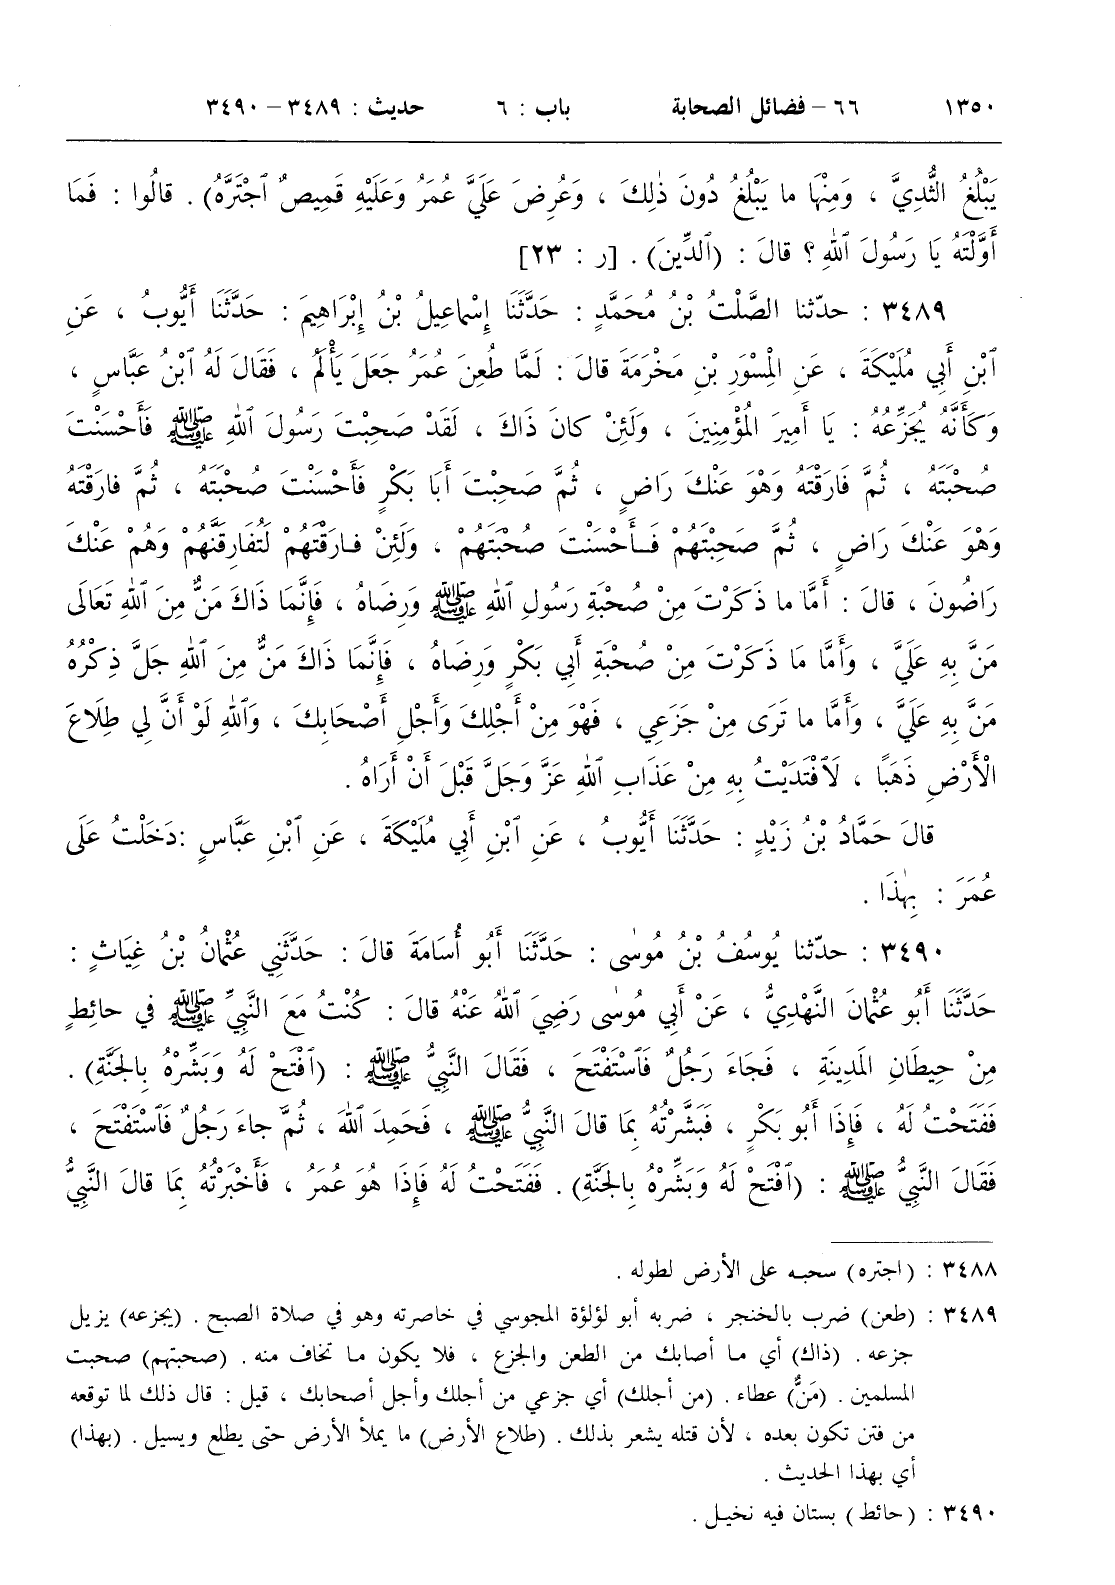 ١٣٥٠ ٦٦ – فضائل الصحابة باب : ٦ حديث : ٣٤٨٩ – ٣٤٩٠
يَبْلُغُ الثُّدِيَّ ، وَمِنْهَا ما يَبْلُغُ دُونَ ذٰلِكَ ، وَعُرِضَ عَلَيَّ عُمَرُ وَعَلَيْهِ قَمِيصٌ ٱجْتَرَّهُ) . قالُوا : فَمَا
أَوَّلْتَهُ يَا رَسُولَ ٱللهِ ؟ قالَ : (ٱلدِّينَ) . [ر : ٢٣]
٣٤٨٩ : حدّثنا الصَّلْتُ بْنُ مُحَمَّدٍ : حَدَّثَنَا إِسْماعِيلُ بْنُ إِبْرَاهِيمَ : حَدَّثَنَا أَيُّوبُ ، عَنِ
ٱبْنِ أَبِي مُلَيْكَةَ ، عَنِ الْمِسْوَرِ بْنِ مَخْرَمَةَ قالَ : لَمَّا طُعِنَ عُمَرُ جَعَلَ يَأْلَمُ ، فَقَالَ لَهُ ٱبْنُ عَبَّاسٍ ،
وَكَأَنَّهُ يُجَزِّعُهُ : يَا أَمِيرَ الْمُؤْمِنِينَ ، وَلَئِنْ كانَ ذَاكَ ، لَقَدْ صَحِبْتَ رَسُولَ ٱللهِ ﷺ فَأَحْسَنْتَ
صُحْبَتَهُ ، ثُمَّ فَارَقْتَهُ وَهْوَ عَنْكَ رَاضٍ ، ثُمَّ صَحِبْتَ أَبَا بَكْرٍ فَأَحْسَنْتَ صُحْبَتَهُ ، ثُمَّ فارَقْتَهُ
وَهْوَ عَنْكَ رَاضٍ ، ثُمَّ صَحِبْتَهُمْ فَأَحْسَنْتَ صُحْبَتَهُمْ ، وَلَئِنْ فارَقْتَهُمْ لَتُفَارِقَنَّهُمْ وَهُمْ عَنْكَ
رَاضُونَ ، قالَ : أَمَّا ما ذَكَرْتَ مِنْ صُحْبَةِ رَسُولِ ٱللهِ ﷺ وَرِضَاهُ ، فَإِنَّمَا ذَاكَ مَنٌّ مِنَ ٱللهِ تَعَالَى
مَنَّ بِهِ عَلَيَّ ، وَأَمَّا مَا ذَكَرْتَ مِنْ صُحْبَةِ أَبِي بَكْرٍ وَرِضَاهُ ، فَإِنَّمَا ذَاكَ مَنٌّ مِنَ ٱللهِ جَلَّ ذِكْرُهُ
مَنَّ بِهِ عَلَيَّ ، وَأَمَّا ما تَرَى مِنْ جَزَعِي ، فَهْوَ مِنْ أَجْلِكَ وَأَجْلِ أَصْحَابِكَ ، وَٱللهِ لَوْ أَنَّ لِي طِلَاعَ
الْأَرْضِ ذَهَبًا ، لَٱفْتَدَيْتُ بِهِ مِنْ عَذَابِ ٱللهِ عَزَّ وَجَلَّ قَبْلَ أَنْ أَرَاهُ .
قالَ حَمَّادُ بْنُ زَيْدٍ : حَدَّثَنَا أَيُّوبُ ، عَنِ ٱبْنِ أَبِي مُلَيْكَةَ ، عَنِ ٱبْنِ عَبَّاسٍ :دَخَلْتُ عَلَى
عُمَرَ : بِهٰذَا .
٣٤٩٠ : حدّثنا يُوسُفُ بْنُ مُوسٰى : حَدَّثَنَا أَبُو أُسَامَةَ قالَ : حَدَّثَنِي عُثْمانُ بْنُ غِيَاثٍ :
حَدَّثَنَا أَبُو عُثْمانَ النَّهْدِيُّ ، عَنْ أَبِي مُوسٰى رَضِيَ ٱللهُ عَنْهُ قالَ : كُنْتُ مَعَ النَّبِيِّ ﷺ في حائِطٍ
مِنْ حِيطَانِ المَدِينَةِ ، فَجَاءَ رَجُلٌ فَٱسْتَفْتَحَ ، فَقَالَ النَّبِيُّ ﷺ : (ٱفْتَحْ لَهُ وَبَشِّرْهُ بِالجَنَّةِ) .
فَفَتَحْتُ لَهُ ، فَإِذَا أَبُو بَكْرٍ ، فَبَشَّرْتُهُ بِمَا قالَ النَّبِيُّ ﷺ ، فَحَمِدَ ٱللهَ ، ثُمَّ جاءَ رَجُلٌ فَٱسْتَفْتَحَ ،
فَقَالَ النَّبِيُّ ﷺ : (ٱفْتَحْ لَهُ وَبَشِّرْهُ بِالجَنَّةِ) . فَفَتَحْتُ لَهُ فَإِذَا هُوَ عُمَرُ ، فَأَخْبَرْتُهُ بِمَا قالَ النَّبِيُّ
٣٤٨٨ : (اجتره) سحبه على الأرض لطوله .
٣٤٨٩ : (طعن) ضرب بالخنجر ، ضربه أبو لؤلؤة المجوسي في خاصرته وهو في صلاة الصبح . (يجزعه) يزيل
جزعه . (ذاك) أي ما أصابك من الطعن والجزع ، فلا يكون ما تخاف منه . (صحبتهم) صحبت
المسلمين . (مَنٌّ) عطاء . (من أجلك) أي جزعي من أجلك وأجل أصحابك ، قيل : قال ذلك لما توقعه
من فتن تكون بعده ، لأن قتله يشعر بذلك . (طلاع الأرض) ما يملأ الأرض حتى يطلع ويسيل . (بهذا)
أي بهذا الحديث .
٣٤٩٠ : (حائط) بستان فيه نخيل .